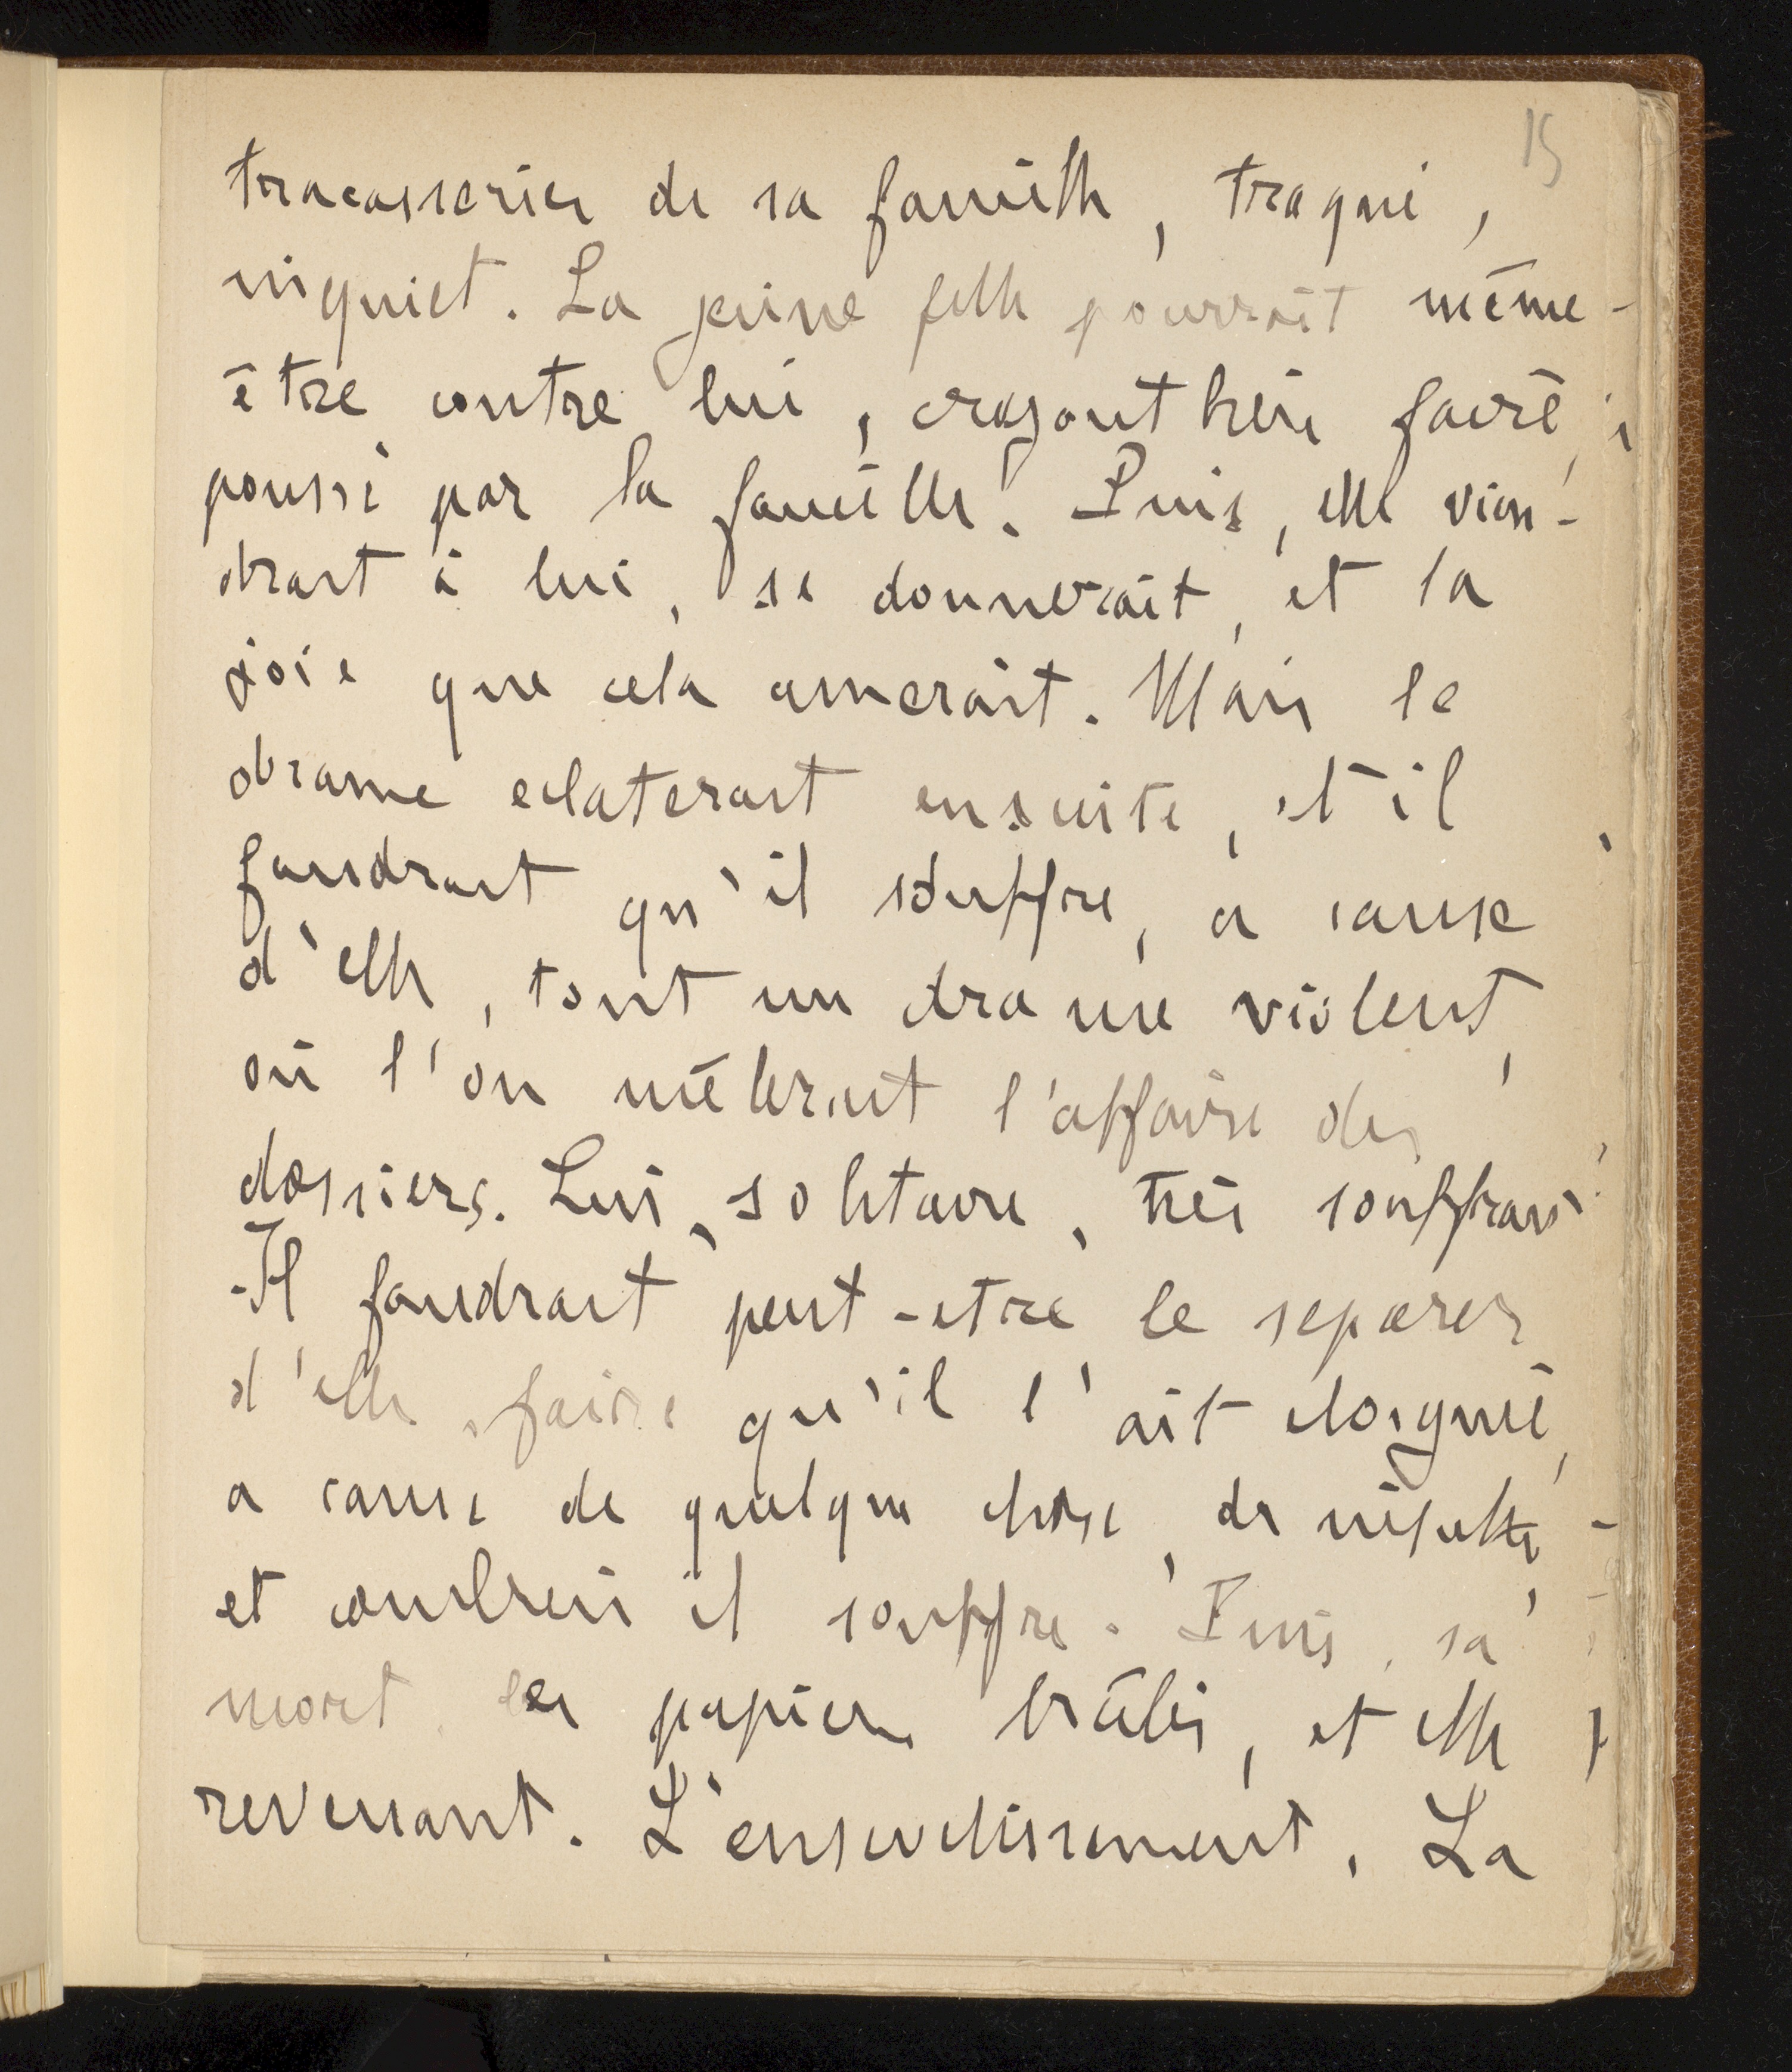 15
tracasseries de sa famille, traqué,
inquiet. La jeune fille pourrait même
être contre lui, croyant bien faire,
poussé par la famille. Puis, elle vien-
drait à lui, se donnerait, et la
joie que cela amerait. Mais le
drame eclaterait ensuite, et il
faudrait qu'il souffre, a cause
d'elle, tout un drame violent,
où l'on mêlerait l'affaire des
dossiers. Lui, solitaire, très souffrant.
Il faudrait peut-etre le separer
d'elle, faire qu'il l'ait eloigné,
a cause de quelque chose, de
et combien il souffre. Puis, sa
mort, les papiers brûlés, et elle
revenant. L'ensevelissement. La